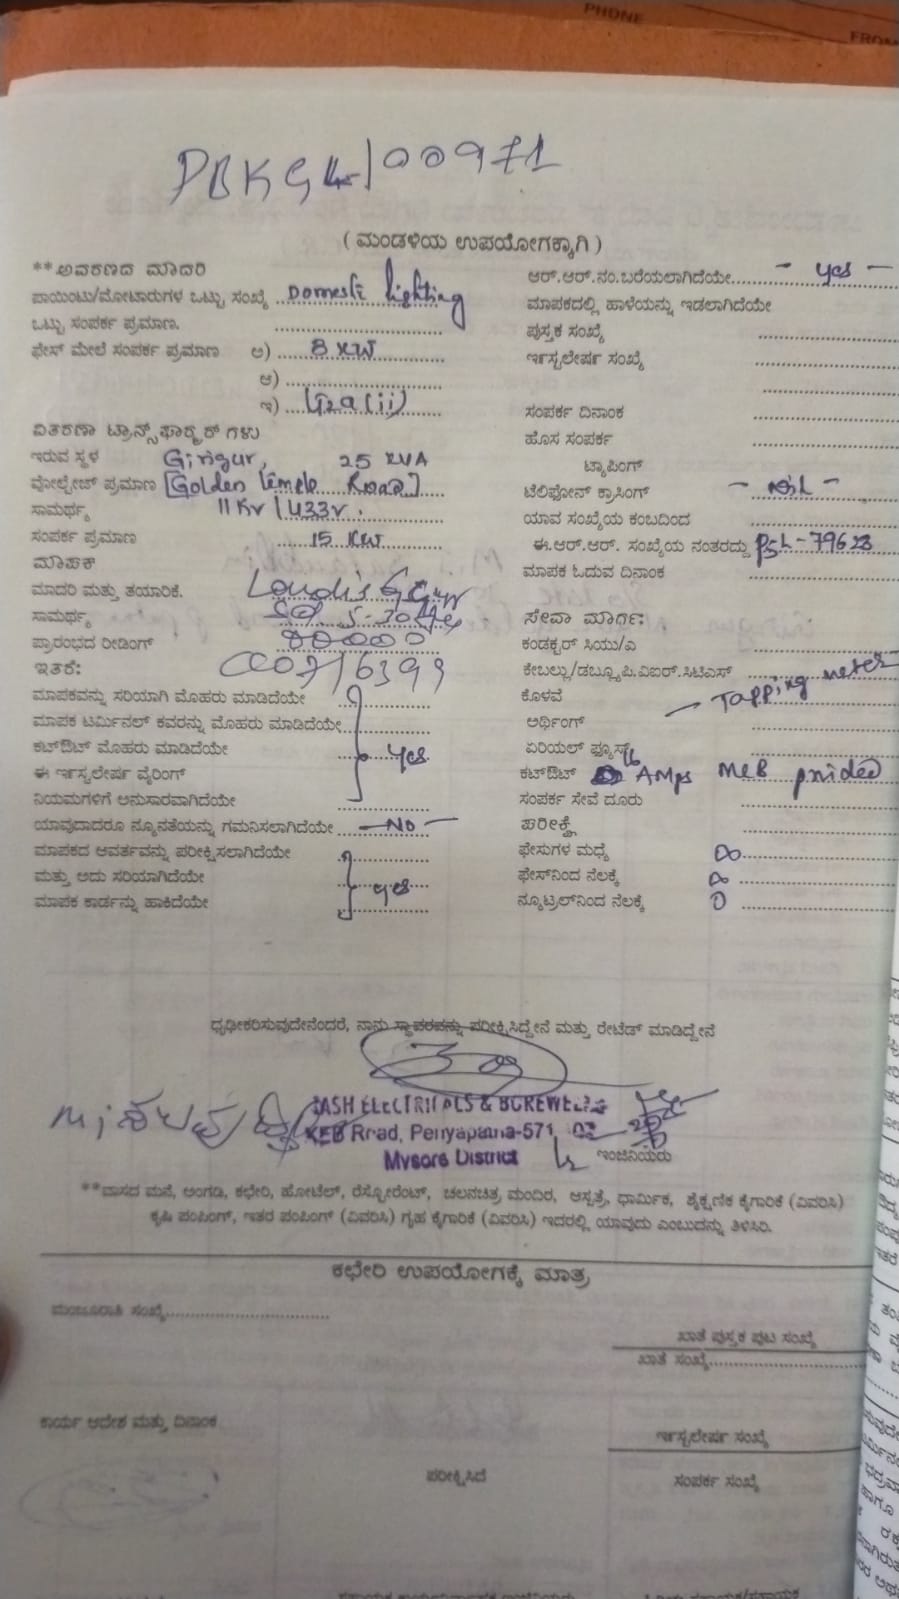 PHONE
FROM
PBKG4/00971
( ಮಂಡಳಿಯ ಉಪಯೋಗಕ್ಕಾಗಿ )
**ಅವಕರಣದ ಮಾದರಿ
ಪಾಯಿಂಟು/ಮೋಟಾರುಗಳ ಒಟ್ಟು ಸಂಖ್ಯೆ Domestic lighting
ಒಟ್ಟು ಸಂಪರ್ಕ ಪ್ರಮಾಣ.
ಫೇಸ್ ಮೇಲೆ ಸಂಪರ್ಕ ಪ್ರಮಾಣ ಅ) 8 KW
ಆ)
ಇ) LT2a(ii)
ವಿತರಣಾ ಟ್ರಾನ್ಸ್‌ಫಾರ್‍ಮರ್ ಗಳು
ಇರುವ ಸ್ಥಳ Girigur, 25 KVA
ವೋಲ್ಟೇಜ್ ಪ್ರಮಾಣ [Golden temple Road]
ಸಾಮರ್ಥ್ಯ 11KV/433V.
ಸಂಪರ್ಕ ಪ್ರಮಾಣ 15 KW
ಮಾಪಕ
ಮಾದರಿ ಮತ್ತು ತಯಾರಿಕೆ.
ಸಾಮರ್ಥ್ಯ 5-30
ಪ್ರಾರಂಭದ ರೀಡಿಂಗ್ 00000
ಇತರೆ:
ಮಾಪಕವನ್ನು ಸರಿಯಾಗಿ ಮೊಹರು ಮಾಡಿದೆಯೇ
ಮಾಪಕ ಟರ್ಮಿನಲ್ ಕವರನ್ನು ಮೊಹರು ಮಾಡಿದೆಯೇ
ಕಟ್‌ಔಟ್ ಮೊಹರು ಮಾಡಿದೆಯೇ yes
ಈ ಇನ್‌ಸ್ಟಲೇಷನ್ ವೈರಿಂಗ್
ನಿಯಮಗಳಿಗೆ ಅನುಸಾರವಾಗಿದೆಯೇ
ಯಾವುದಾದರೂ ನ್ಯೂನತೆಯನ್ನು ಗಮನಿಸಲಾಗಿದೆಯೇ - NO -
ಮಾಪಕದ ಆವರ್ತವನ್ನು ಪರೀಕ್ಷಿಸಲಾಗಿದೆಯೇ
ಮತ್ತು ಅದು ಸರಿಯಾಗಿದೆಯೇ yes
ಮಾಪಕ ಕಾರ್ಡನ್ನು ಹಾಕಿದೆಯೇ
ಆರ್.ಆರ್.ನಂ.ಬರೆಯಲಾಗಿದೆಯೇ - yes -
ಮಾಪಕದಲ್ಲಿ ಹಾಳೆಯನ್ನು ಇಡಲಾಗಿದೆಯೇ
ಪುಸ್ತಕ ಸಂಖ್ಯೆ
ಇನ್‌ಸ್ಟಲೇಷನ್ ಸಂಖ್ಯೆ
ಸಂಪರ್ಕ ದಿನಾಂಕ
ಹೊಸ ಸಂಪರ್ಕ
ಟ್ಯಾಪಿಂಗ್
ಟೆಲಿಫೋನ್ ಕ್ರಾಸಿಂಗ್ - NIL -
ಯಾವ ಸಂಖ್ಯೆಯ ಕಂಬದಿಂದ
ಈ.ಆರ್.ಆರ್. ಸಂಖ್ಯೆಯ ನಂತರದ್ದು PGL-79628
ಮಾಪಕ ಓದುವ ದಿನಾಂಕ
ಸೇವಾ ಮಾರ್ಗ:
ಕಂಡಕ್ಟರ್ ಸಿಯು/ಎ
ಕೇಬಲ್ಲು/ಡಬ್ಲ್ಯೂಪಿ.ವಿಐಆರ್.ಸಿಟಿಎಸ್
ಕೊಳವೆ - Tapping meter
ಅರ್ಥಿಂಗ್
ಏರಿಯಲ್ ಫ್ಯೂಸ್
ಕಟ್‌ಔಟ್ 16 Amps MCB provided
ಸಂಪರ್ಕ ಸೇವೆ ದೂರು
ಪರೀಕ್ಷೆ
ಫೇಸುಗಳ ಮಧ್ಯೆ ∞
ಫೇಸ್‌ನಿಂದ ನೆಲಕ್ಕೆ ∞
ನ್ಯೂಟ್ರಲ್‌ನಿಂದ ನೆಲಕ್ಕೆ 0
ಧೃಢೀಕರಿಸುವುದೇನೆಂದರೆ, ನಾನು ಸ್ಥಾವರವನ್ನು ಪರೀಕ್ಷಿಸಿದ್ದೇನೆ ಮತ್ತು ರೇಟೆಡ್ ಮಾಡಿದ್ದೇನೆ
ELECTRICALS & BOREWELLS
KEB Road, Periyapatna-571
Mysore District
ಇಂಜಿನಿಯರು
**ವಾಸದ ಮನೆ, ಅಂಗಡಿ, ಕಛೇರಿ, ಹೋಟೆಲ್, ರೆಸ್ಟೋರೆಂಟ್, ಚಲನಚಿತ್ರ ಮಂದಿರ, ಆಸ್ಪತ್ರೆ, ಧಾರ್ಮಿಕ, ಶೈಕ್ಷಣಿಕ ಕೈಗಾರಿಕೆ (ವಿವರಿಸಿ)
ಕೃಷಿ ಪಂಪಿಂಗ್, ಇತರ ಪಂಪಿಂಗ್ (ವಿವರಿಸಿ) ಗೃಹ ಕೈಗಾರಿಕೆ (ವಿವರಿಸಿ) ಇದರಲ್ಲಿ ಯಾವುದು ಎಂಬುದನ್ನು ತಿಳಿಸಿರಿ.
ಕಛೇರಿ ಉಪಯೋಗಕ್ಕೆ ಮಾತ್ರ
ಮಂಜೂರಾತಿ ಸಂಖ್ಯೆ
ಖಾತೆ ಪುಸ್ತಕ ಪುಟ ಸಂಖ್ಯೆ
ಖಾತೆ ಸಂಖ್ಯೆ
ಕಾರ್ಯ ಆದೇಶ ಮತ್ತು ದಿನಾಂಕ
ಇನ್‌ಸ್ಟಲೇಷನ್ ಸಂಖ್ಯೆ
ಪರೀಕ್ಷಿಸಿದೆ
ಸಂಪರ್ಕ ಸಂಖ್ಯೆ